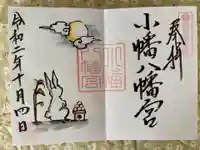 奉拝
小幡八幡宮
令和二年十月四日